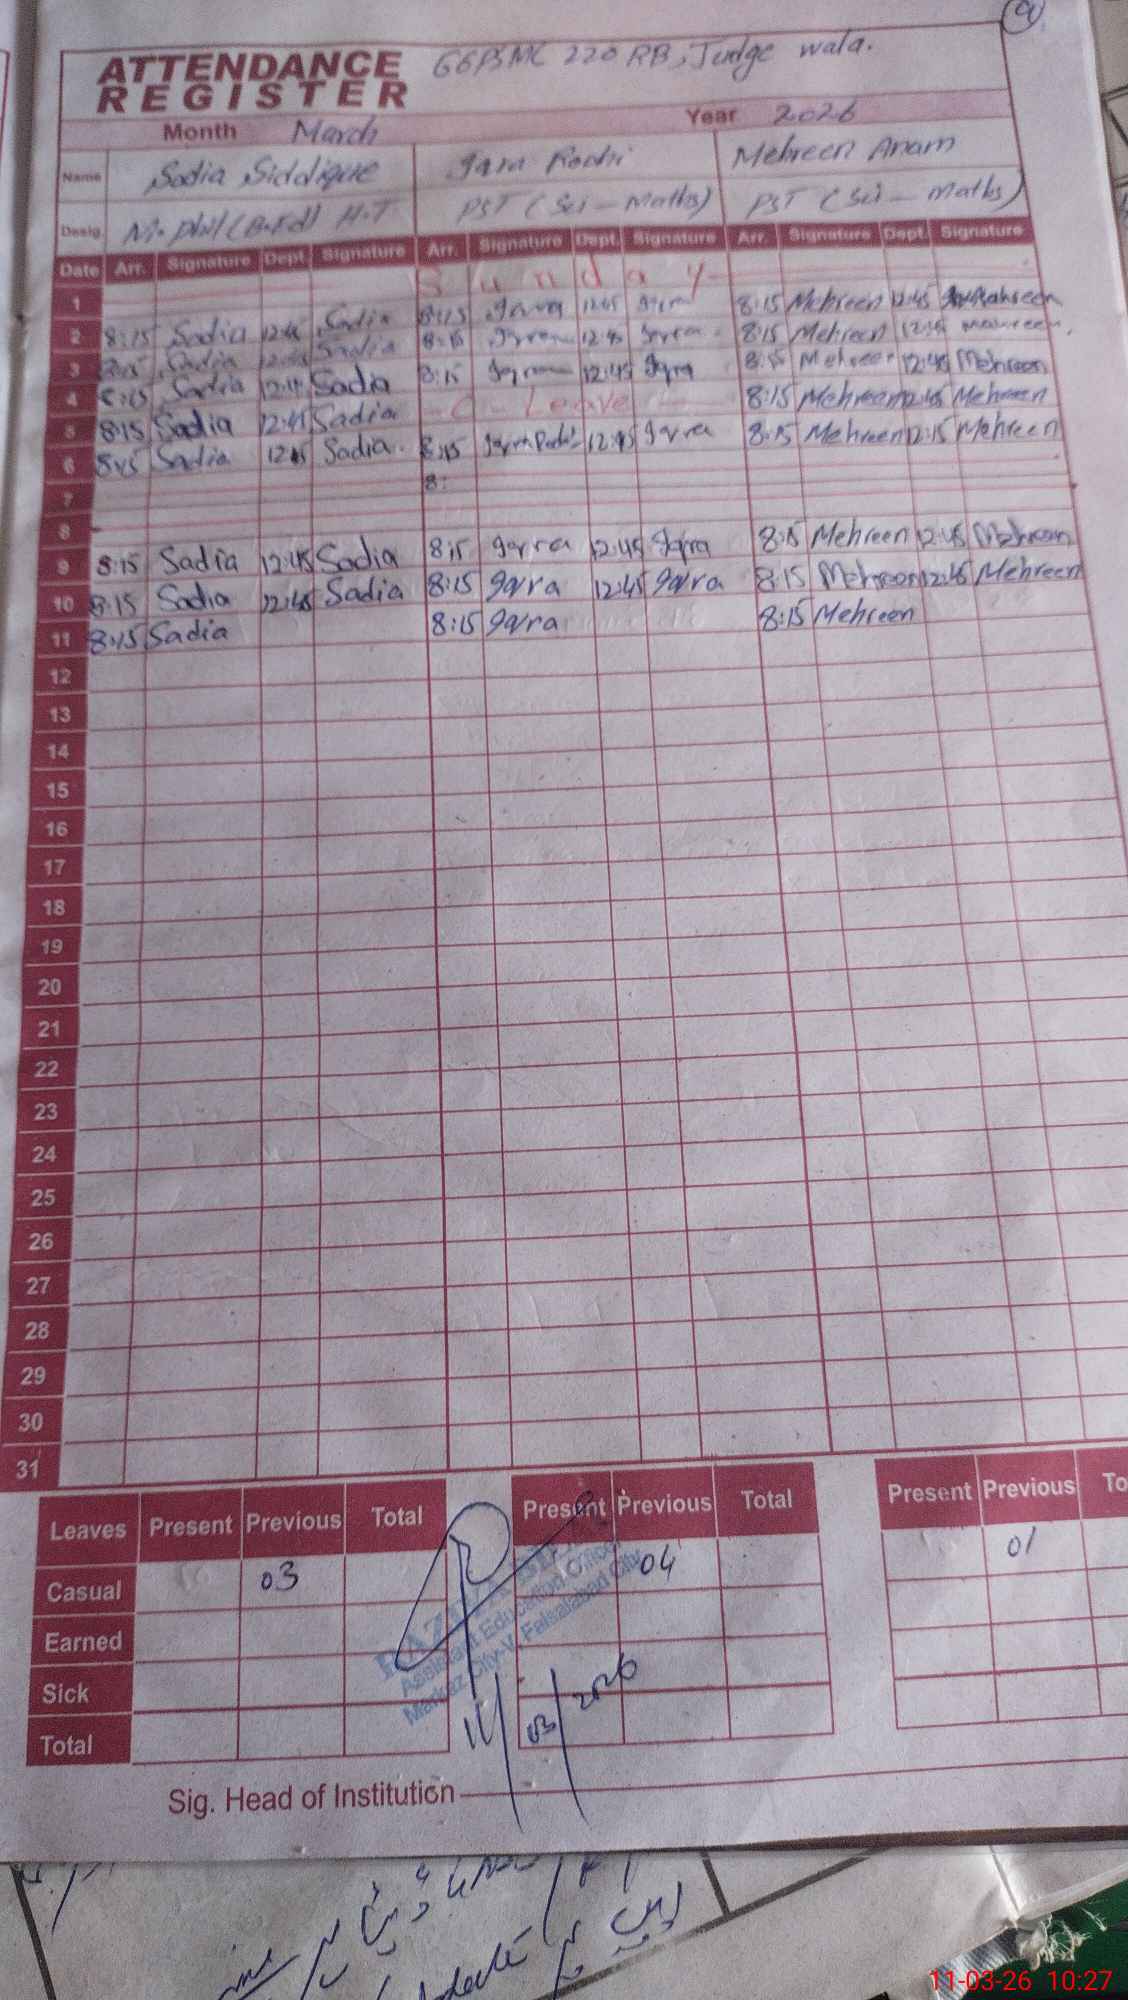 9
ATTENDANCE REGISTER GGPSMC 220 RB, Judge wala.
Month March Year 2026
Name Sadia Siddique Iqra Mehreen Anam
Desig. M.Phil (B.Ed) H.T PST (Sci - Maths) PST (Sci - Maths)
Date Arr. Signature Dept. Signature Arr. Signature Dept. Signature Arr. Signature Dept. Signature
1 Sunday
2 8:15 Sadia 12:45 Sadia 8:15 Iqra 12:45 Iqra 8:15 Mehreen 12:45 Mahreen
3 8:15 Sadia 12:45 Sadia 8:15 Iqra 12:45 Iqra 8:15 Mehreen 12:45 Mahreen
4 8:15 Sadia 12:45 Sadia 8:15 Iqra 12:45 Iqra 8:15 Mehreen 12:45 Mehreen
5 8:15 Sadia 12:45 Sadia - C - Leave - 8:15 Mehreen 12:45 Mehreen
6 8:15 Sadia 12:45 Sadia 8:15 Iqra 12:45 Iqra 8:15 Mehreen 12:15 Mehreen
7 8:
8
9 8:15 Sadia 12:45 Sadia 8:15 Iqra 12:45 Iqra 8:15 Mehreen 12:45 Mehreen
10 8:15 Sadia 12:45 Sadia 8:15 Iqra 12:45 Iqra 8:15 Mehreen 12:45 Mehreen
11 8:15 Sadia 8:15 Iqra 8:15 Mehreen
12
13
14
15
16
17
18
19
20
21
22
23
24
25
26
27
28
29
30
31
Leaves Present Previous Total Present Previous Total Present Previous To
Casual 03 04 01
Earned
Sick
Total
Assistant Education Officer
Markaz City-V, Faisalabad City
11/03/2026
Sig. Head of Institution
11-03-26 10:27